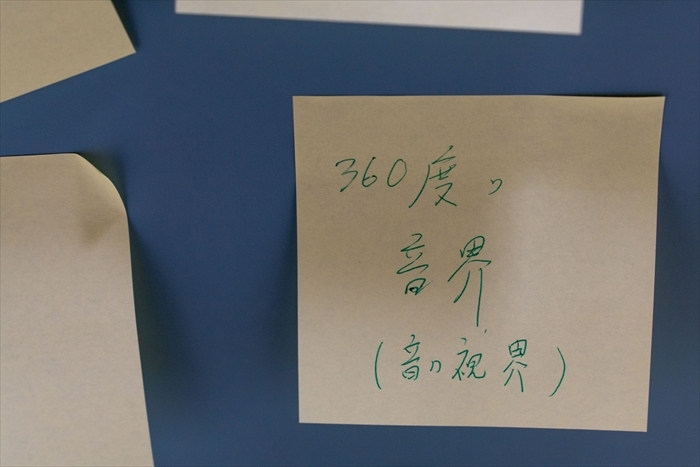 360度の
音界
(音の視界)